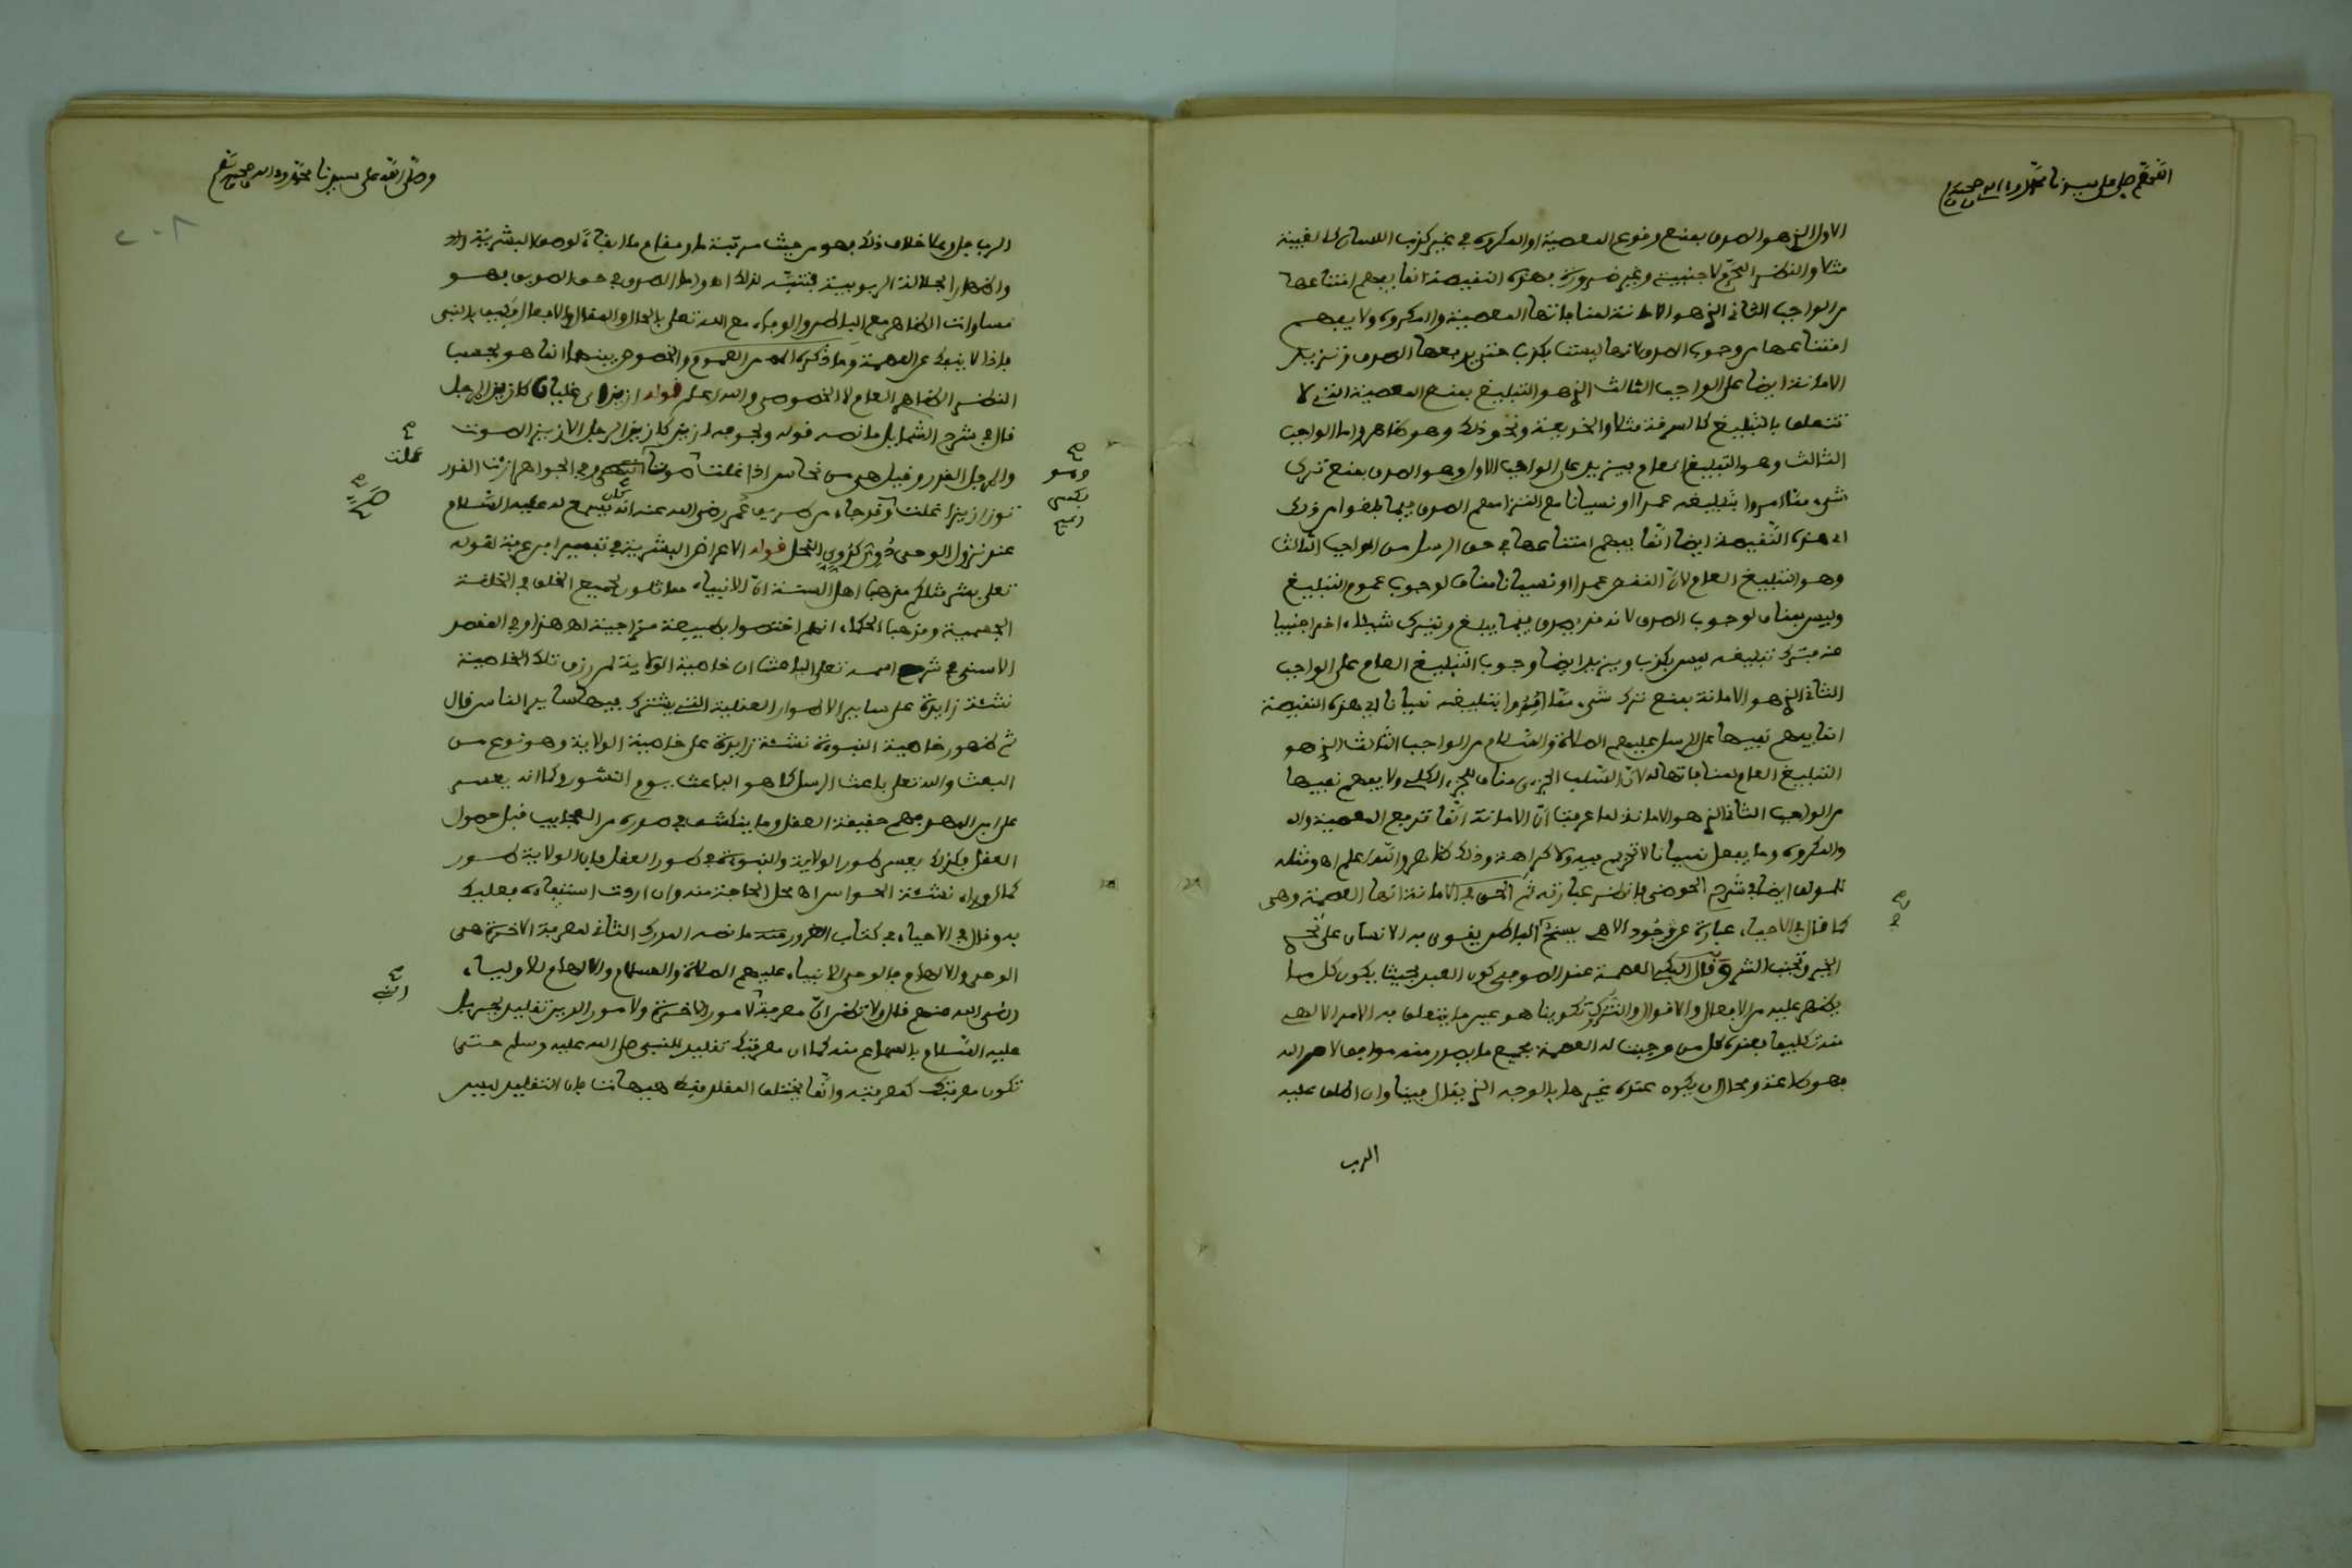 اللهم صل على سيدنا محمد وءاله وصحبه
الاول الذي هو الصدق بمنع وقوع المعصية او المكروه في غير كذب اللسان كالغيبة
مثلا والنظر المحرم لاجنبية وغير ضرورة بهذه النقيصة انما يفهم امتناعها
من الواجب الثاني الذي هو الامانة لمنافاتها المعصية والمكروه ولا يفهم
امتناعها من وجوب الصدق لانها ليست بكذب حتى يدفعها الصدق وتزيد
الامانة ايضا على الواجب الثالث الذي هو التبليغ بمنع المعصية التي لا
تتعلق بالتبليغ كالسرقة مثلا والخديعة ونحو ذلك وهو ظاهر واما الواجب
الثالث وهو التبليغ العام فيزيد على الواجب الاول وهو الصدق بمنع ترك
شيء مما امروا بتبليغه عمدا او نسيانا مع التزامهم الصدق فيما بلغوا من ذلك
اذ هذه النقيصة ايضا انما يفهم امتناعها في حق الرسل من الواجب الثالث
وهو التبليغ العام لان النقص عمدا او نسيانا مناف لوجوب عموم التبليغ
وليس مناف لوجوب الصدق لانه قد يصدق فيما يبلغ ويترك شيئا اخر اجنبيا
عنه فترك تبليغه ليس بكذب ويزيد ايضا وجوب التبليغ العام على الواجب
الثاني الذي هو الامانة بمنع ترك شيء مما امروا بتبليغه نسيانا اذ هذه النقيصة
انما يفهم نفيها على الرسل عليهم الصلاة والسلام من الواجب الثالث الذي هو
التبليغ العام لمنافاتها له لان السلب الجزءي مناف للجزء الكلي ولا يفهم نفيها
من الواجب الثاني الذي هو الامانة لما عرفت ان الامانة انما تدفع المعصية واله
والمكروه وما يفعل نسيانا لا تحريم فيه ولا كراهة وذلك ظاهر والله اعلم اه ومثله
للمولف ايضا في شرح الحوضي فانظر عبارته ثم الحق في الامانة انها العصمة وهي
كما قال في الاحياء عبارة عن وجود الاهي يسنح الباطن يقوى به الانسان على تحري
الخير وتجنب الشر وقال البكي العصمة عند الصوفي كون العبد بحيث يكون كل ما
يظهر عليه من الافعال والاقوال والتروك تكوينا هو عين ما يتعلق به الامر الالهي
منه تكليفا بهذه كل من وجبت له العصمة بجميع ما يصدر منه موافق لامر الله
فهو طاعة ومحال ان يكون عنده غيرها بالوجه الذي يقال فينا وان اطلق عليه
الرب
وصلى الله على سيدنا محمد وءاله وصحبه وسلم
٢٠٨
الرب جل وعلا خلاف ذلك فهو من حيث مرتبته او مقام ما ايفاء لوصف البشرية
واظهارا لجلالة الربوبية فتنبه لذلك اه واما الصدق في حق الصوفي فهو
مساوات الظاهر مع الباطن والوفاء مع الله تعلى بالحال والمقال والافعال فكيف بالنبي
فاذا لا ينفك عن العصمة وما ذكره اله من العموم والخصوص بينهما انما هو بحسب
النظر الظاهر العام لا الخصوص والله اعلم قوله ازيز اي غليان كازيز المرجل
قال في شرح الشمايل ما نصه قوله ولجوفه ازيز كازيز المرجل الازيز الصوت
والمرجل القدر وقيل هي من نحاس اذا غلت صوتت وفي الجواهر ازت القدر
توز ازيزا غلت وقد جاء من حديث عمر رضي الله عنه انه كان يسمع له عليه السلام
عند نزول الوحي دوي كدوي النحل قوله الاعراض البشرية في تفسير ابن عرفة لقوله
تعلى بشر مثلكم مذهب اهل السنة ان الانبياء مماثلون لجميع الخلق في الخلقة
الجسمية ومذهب الحكماء انهم اختصوا بطبيعة مزاجية اه هذا وفي المقصد
الاسنى في شرح اسمه تعلى الباعث ان خاصية الولاية لمن رزق تلك الخاصية
نشئة زايدة على ساير الاطوار العقلية التي يشترك فيها ساير الناس قال
ثم ظهور خاصية النبوة نشئة زايدة على خاصية الولاية وهو نوع من
البعث والله تعلى باعث الرسل كما هو الباعث يوم النشور وكما انه يعسر
على ابن المهد فهم حقيقة العقل وما ينكشف في طوره من العجايب قبل حصول
العقل فكذلك يعسر طور الولاية والنبوة في طور العقل فان الولاية طور
كمال وراء نشئة الحواس اه محل الحاجة منه وان اردت استيفاءه فعليك
به وقال في الاحياء في كتاب الغرور منه ما نصه المدرك الثاني لمعرفة الاخرة هي
الوحي والالهام فالوحي للانبياء عليهم الصلاة والسلام والالهام للاولياء
رضي الله عنهم قال ولا تظن ان معرفة الامور الاخرة ولامور الدين تقليد لجبريل
عليه السلام بالسماع منه كما ان معرفتك تقليد للنبي صلى الله عليه وسلم حتى
تكون معرفتك كمعرفته وانما يختلف المقلد فيه هيهات فان التقليد ليس